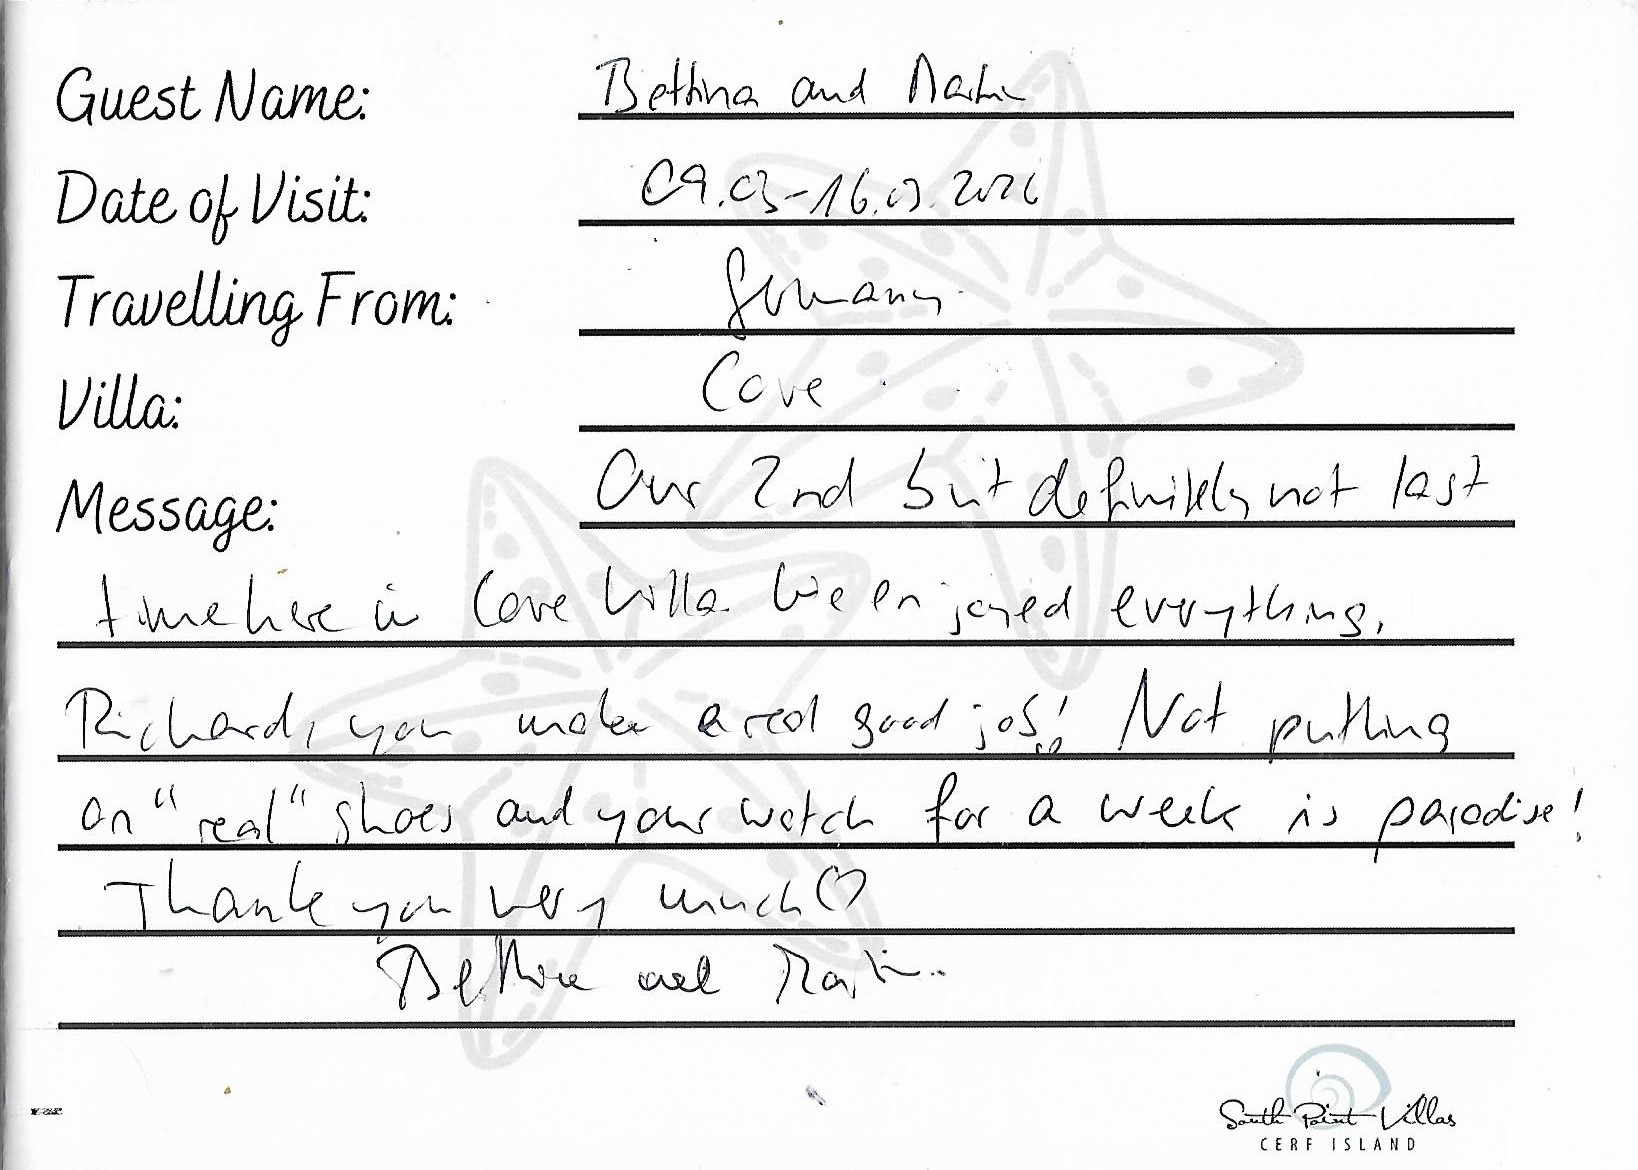 Guest Name: Bettina and Martin
Date of Visit: 09.03-16.03.2026
Travelling From: Germany
Villa: Cove
Message: Our 2nd but definitely not last
time here in Cove Villa. We enjoyed everything.
Richard, you make a real good job! Not putting
on "real" shoes and your watch for a week is paradise!
Thank you very much ♡
Bettina and Martin
South Point Villas
CERF ISLAND